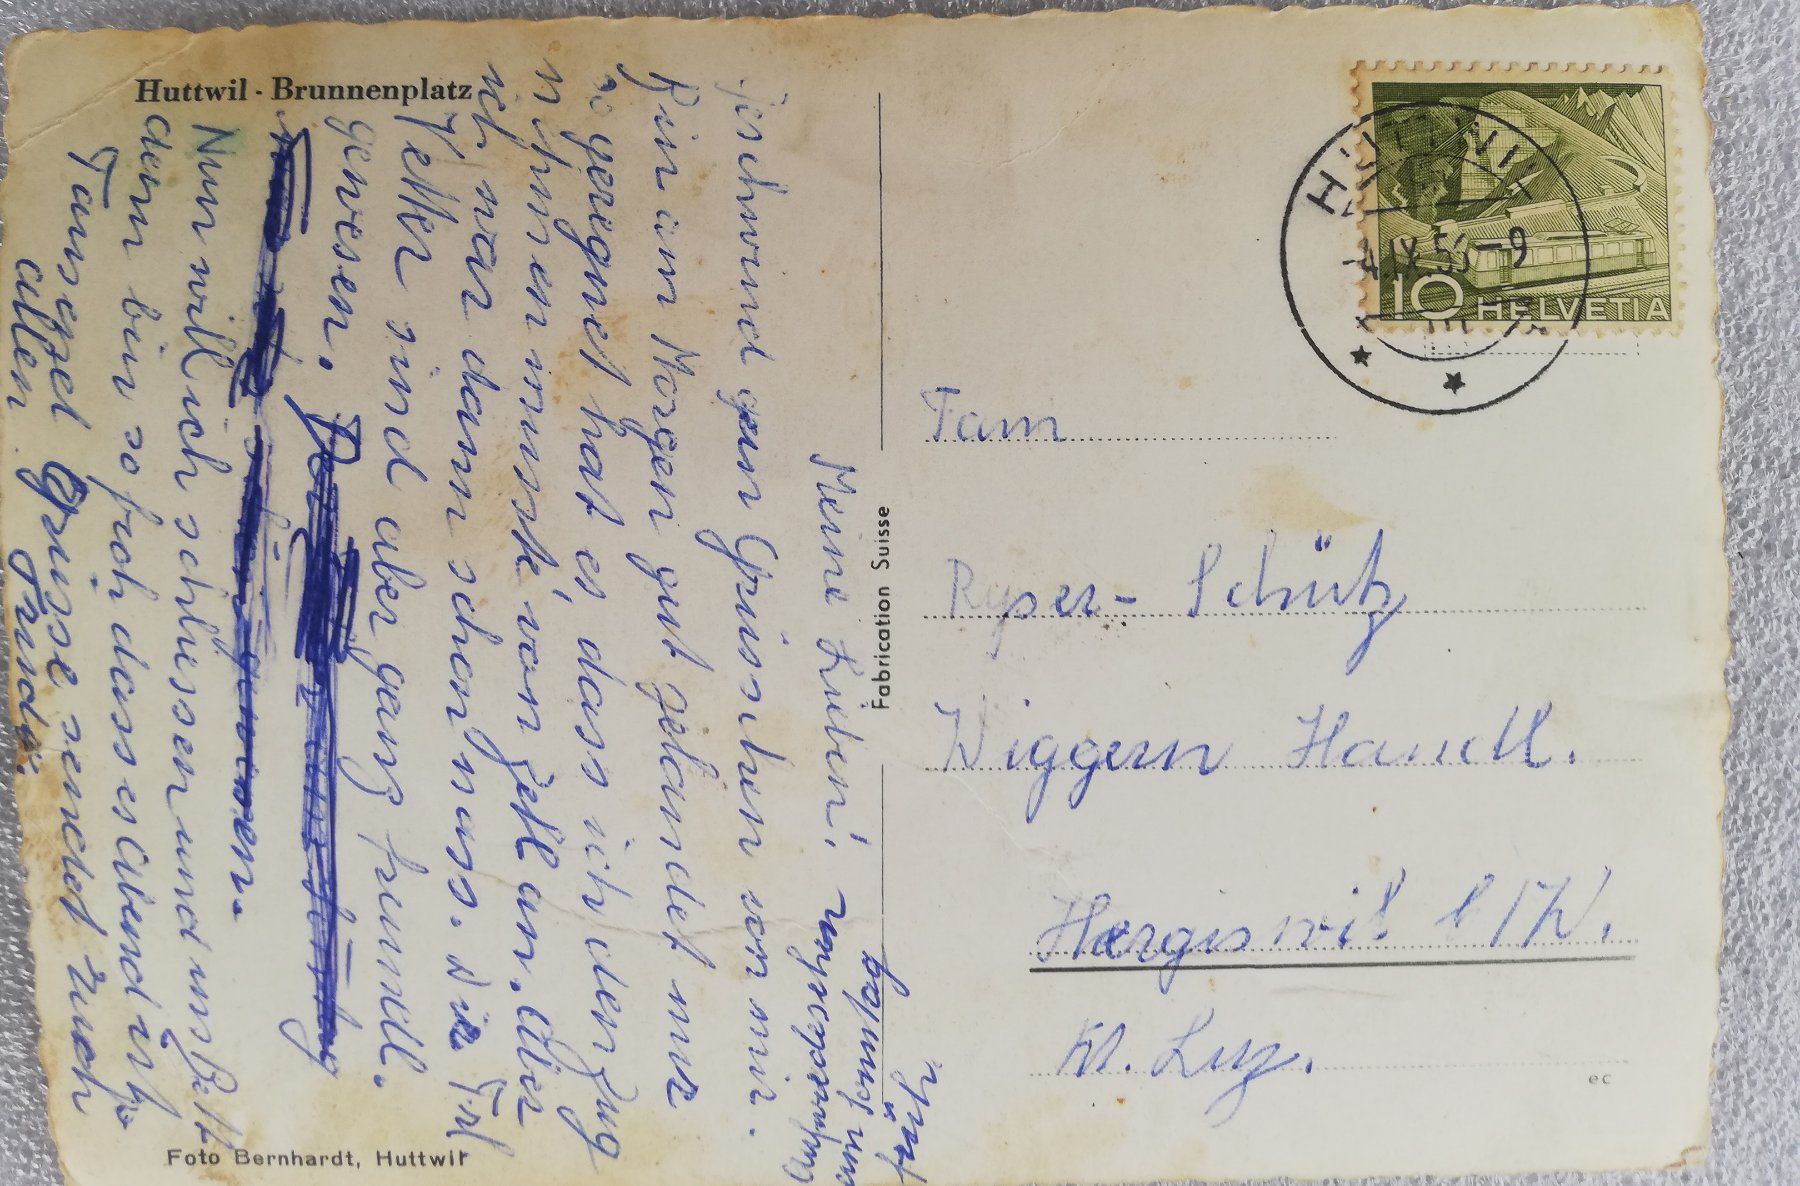 Huttwil - Brunnenplatz
Meine Lieben!
geschwind ein Grüsschen von mir.
Bin am Morgen gut gelandet nur
so geregnet hat es dass ich den Zug
nehmen musste von Zell an. Aber
ich war dann schon nass. Die Frl
Vetter sind aber ganz freundl.
gewesen.
Nun will ich schliessen und ins Bett
denn bin so froh dass es Abend ist
Tausend Grüsse sendet Euch
allen Trudi.
Sonntag
Foto Bernhardt, Huttwil
Fabrication Suisse
HUTTWIL
IX.5
-9
10 HELVETIA
Fam
Ryser-Schütz
Wiggern Handl.
Hergiswil b/W.
Kt. Luz.
ec